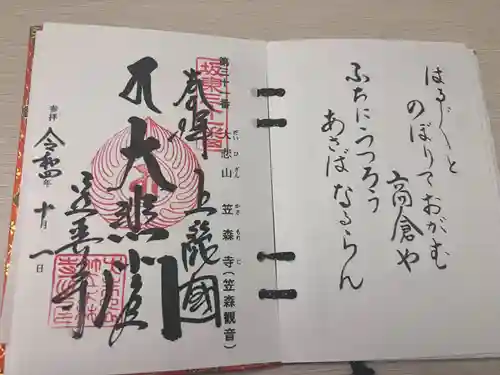 はる〲と
のぼりておがむ
高倉や
ふちにうつろう
あさばなるらん
第三十一番 大悲山 笠森寺(笠森観音)
だいひざん かさもりじ
坂東三十一番
奉拝 上総國
大悲閣
笠森寺
参拝 令和四年 十月 一日